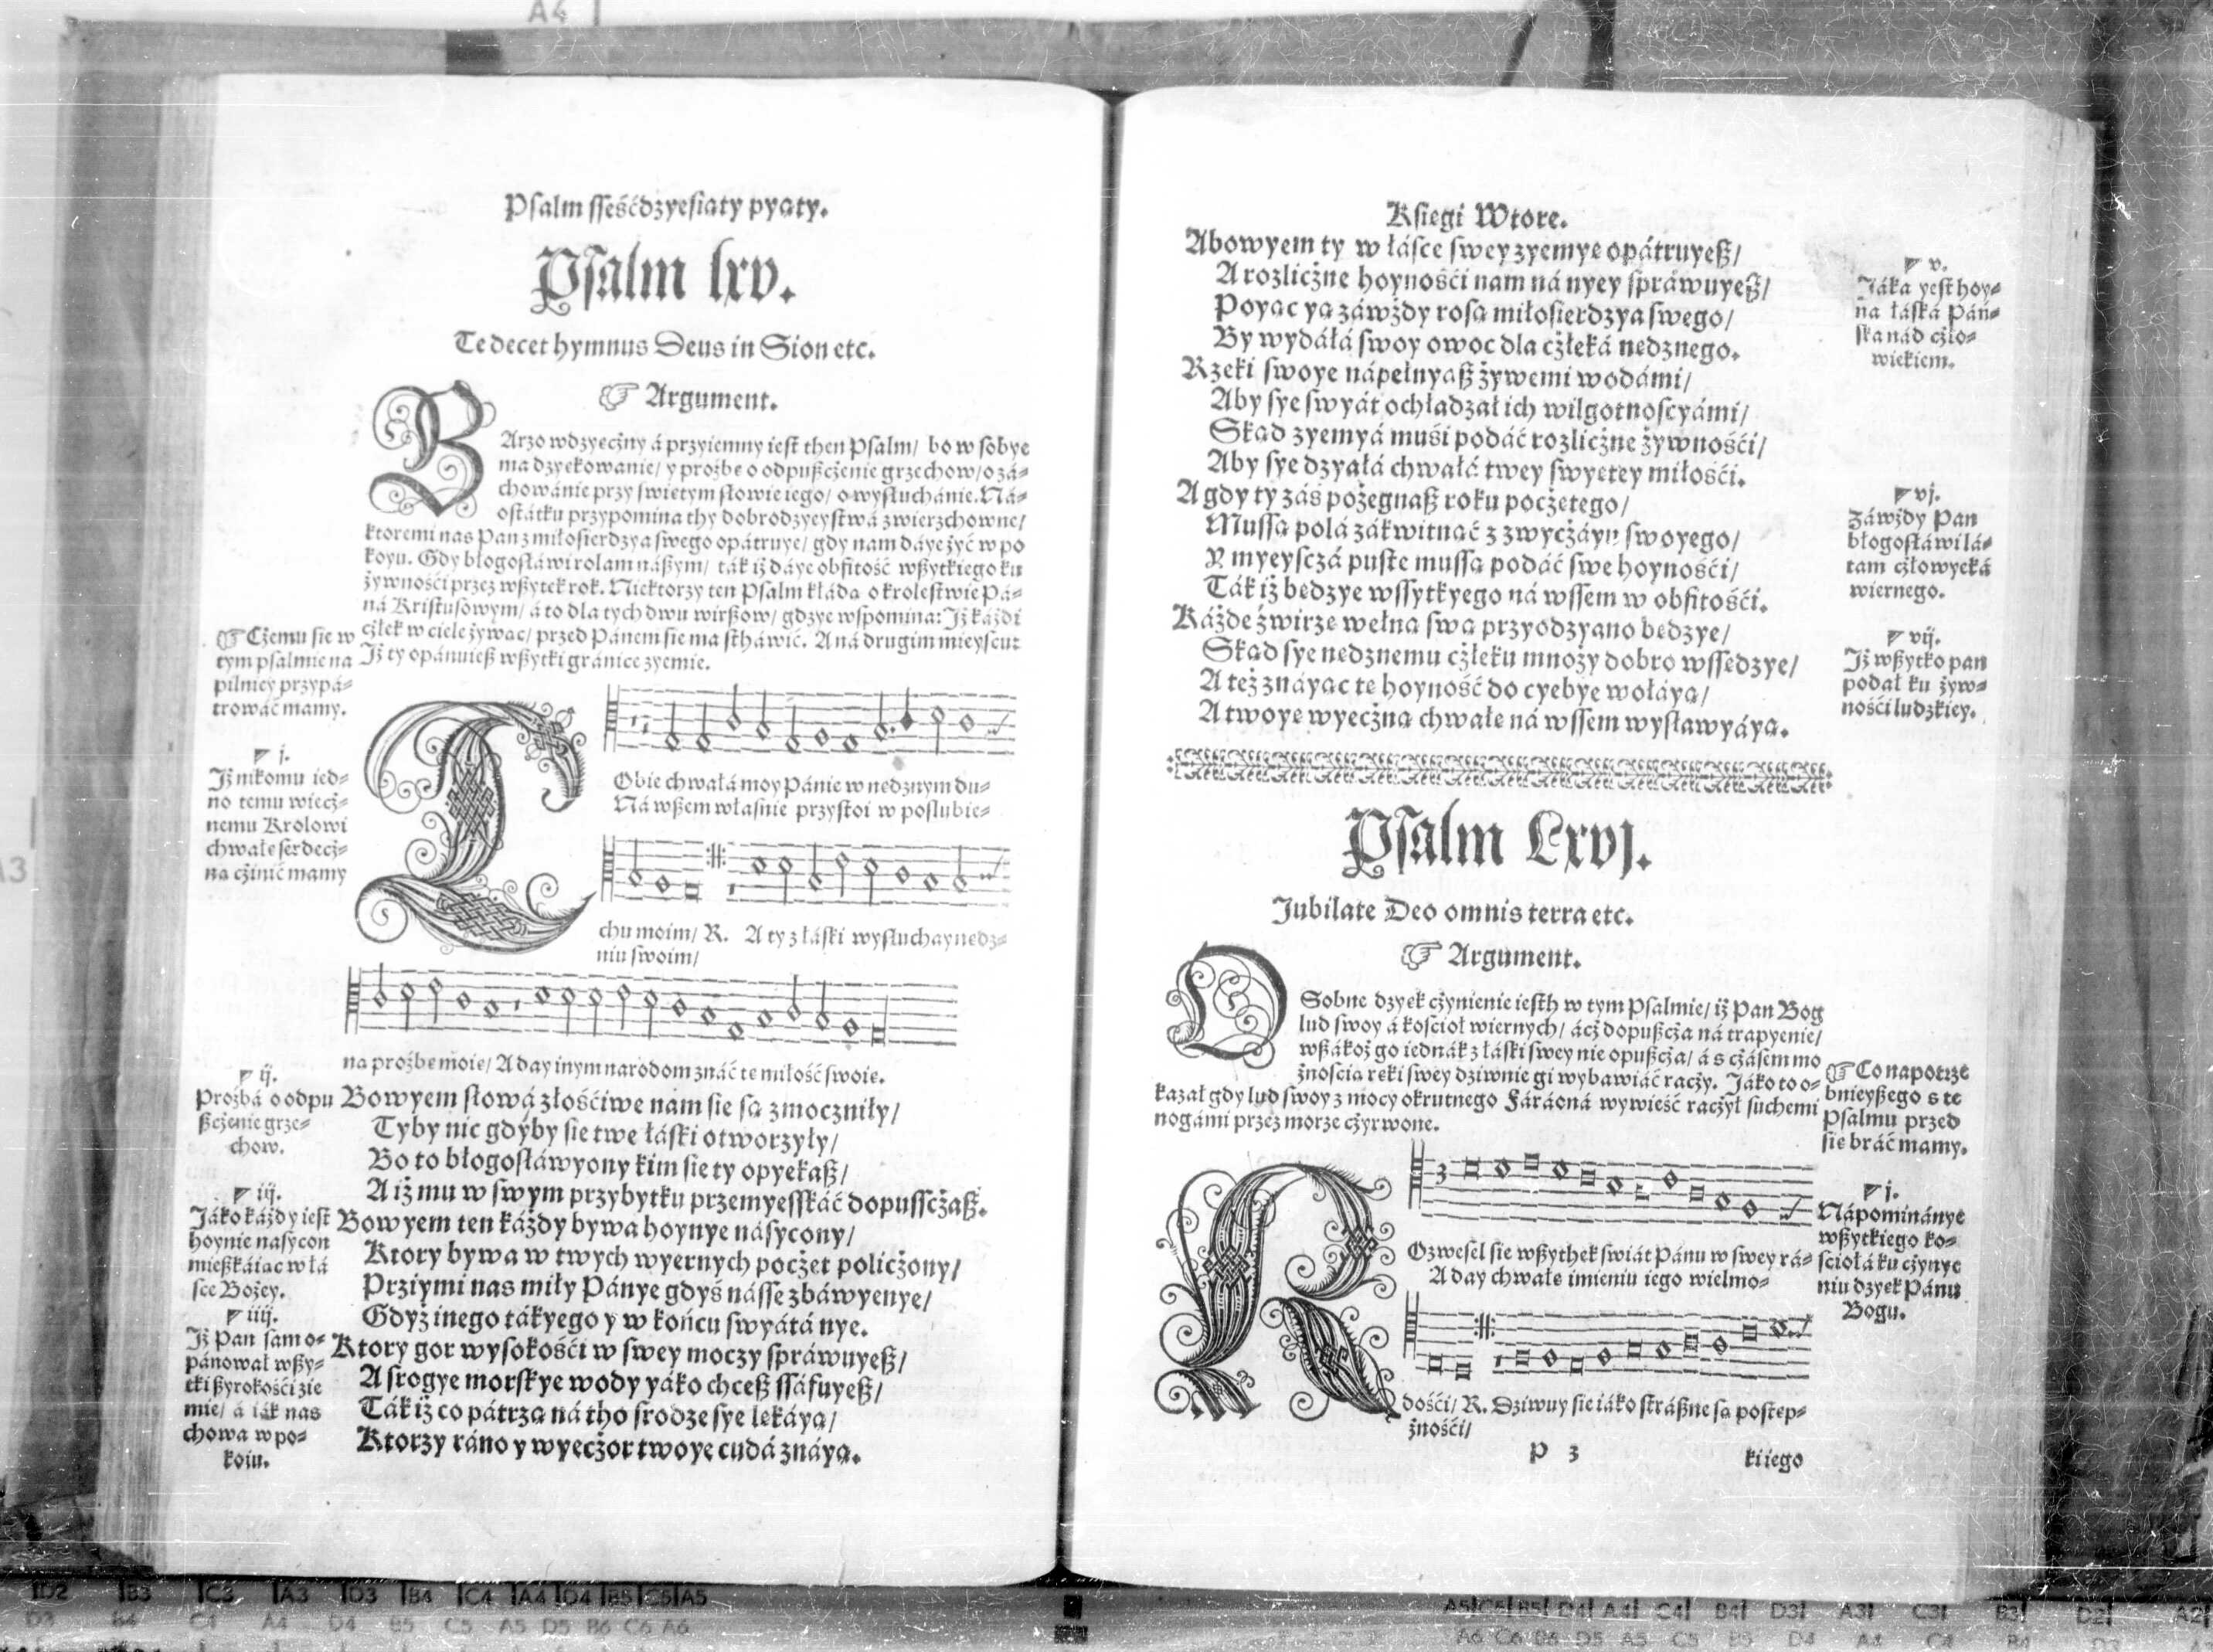 Psalm sseśćdzyesiaty pyąty.
Psalm lxv.
Te decet hymnus Deus in Sion etc.
☞ Argument.
BArzo wdzyecżny á przyiemny iest then Psalm/ bo w sobye
ma dzyękowanie/ y prożbę o odpußcżenie grzechow/ o zá⸗
chowánie przy swiętym słowie iego/ o wysłuchánie. Ná⸗
ostátku przypomina thy dobrodzyeystwá zwierzchowne/
ktoremi nas Pan z miłosierdzya swego opátruye/ gdy nam dáye żyć w po
koyu. Gdy błogosłáwi rolam náßym/ ták iż dáye obfitość wßytkiego ku
żywnośći przez wßytek rok. Niektorzy ten Psalm kłádą o krolestwie Pá⸗
ná Kristusowym/ á to dla tych dwu wirßow/ gdzye wspomina: Iż káżdi
cżłek w ciele żywąc/ przed Pánem sie ma stháwić. A ná drugim mieyscu:
Iż ty opánuieß wßytki gránice zyemie.
☞ Cżemu sie w
tym psalmie na
pilniey przypá⸗
trowáć mamy.
j.
Iż nikomu ied⸗
no temu wiecż⸗
nemu Krolowi
chwałę serdecż⸗
ną cżinić mamy
TObie chwałá moy Pánie w nędznym du⸗
Ná wßem własnie przystoi w poslubie⸗
chu moim/ R. A ty z łáski wysłuchay nędz⸗
niu swoim/
ną prożbę moię/ A day inym narodom znáć tę miłość swoię.
ij.
Prożbá o odpu
ßcżenie grze⸗
chow.
Bowyem słowá złośćiwe nam sie są zmoczniły/
Tyby nic gdyby sie twe łáski otworzyły/
Bo to błogosłáwyony kim sie ty opyekaß/
A iż mu w swym przybytku przemyesskáć dopusscżaß.
iij.
Jáko káżdy iest
hoynie nasycon
mießkáiąc w łá
sce Bożey.
Bowyem ten káżdy bywa hoynye násycony/
Ktory bywa w twych wyernych pocżet policżony/
Prziymi nas miły Pánye gdyś násse zbáwyenye/
Gdyż inego tákyego y w końcu swyátá nye.
iiij.
Iż Pan sam o⸗
pánował wßy⸗
tki ßyrokośći zie
mie/ á iák nas
chowa w po⸗
koiu.
Ktory gor wysokośći w swey moczy spráwuyeß/
A srogye morskye wody yáko chceß ssáfuyeß/
Ták iż co pátrzą ná tho srodze sye lękáyą/
Ktorzy ráno y wyecżor twoye cudá znáyą.
Księgi Wtore.
Abowyem ty w łásce swey zyemyę opátruyeß/
A rozlicżne hoynośći nam ná nyey spráwuyeß/
Poyąc yą záwżdy rosą miłosierdzya swego/
By wydáłá swoy owoc dla cżłeká nędznego.
Rzeki swoye nápełnyaß żywemi wodámi/
Aby sye swyát ochładzał ich wilgotnoscyámi/
Skąd zyemyá muśi podáć rozlicżne żywnośći/
Aby sye dzyałá chwałá twey swyętey miłośći.
A gdy ty záś pożegnaß roku pocżętego/
Mussą polá zákwitnąć z zwycżáyu swoyego/
Y myeysczá puste mussą podáć swe hoynośći/
Ták iż będzye wssytkyego ná wssem w obfitośći.
Káżde źwirzę wełną swą przyodzyano będzye/
Skąd sye nędznemu cżłeku mnoży dobro wssędzye/
A też znáyąc tę hoyność do cyebye wołáyą/
A twoye wyecżną chwałę ná wssem wysławyáyą.
v.
Jáka yest hoy⸗
na łáská Páń⸗
ska nád cżło⸗
wiekiem.
vj.
Záwżdy Pan
błogosłáwi lá⸗
tam cżłowyeká
wiernego.
vij.
Iż wßytko pan
podał ku żyw⸗
nośći ludzkiey.
Psalm Lxvj.
Jubilate Deo omnis terra etc.
☞ Argument.
OSobne dzyęk cżynienie iesth w tym Psalmie/ iż Pan Bog
lud swoy á kościoł wiernych/ ácż dopußcża ná trapyenie/
wßákoż go iednák z łáski swey nie opußcża/ á s cżásem mo
żnoscią ręki swey dziwnie gi wybawiáć racży. Jáko to o⸗
kazał gdy lud swoy z mocy okrutnego Fáráoná wywieść racżył suchemi
nogámi przez morze cżyrwone.
☞ Co napotrze
bnieyßego s te
Psalmu przed
się bráć mamy.
j.
Nápominánye
wßytkiego ko⸗
sciołá ku cżynye
niu dzyęk Pánu
Bogu.
ROzwesel sie wßythek świát Pánu w swey rá⸗
A day chwałę imieniu iego wielmo⸗
dośći/ R. Dziwuy sie iáko stráßne są postęp⸗
żnośći/
P 3
ki iego